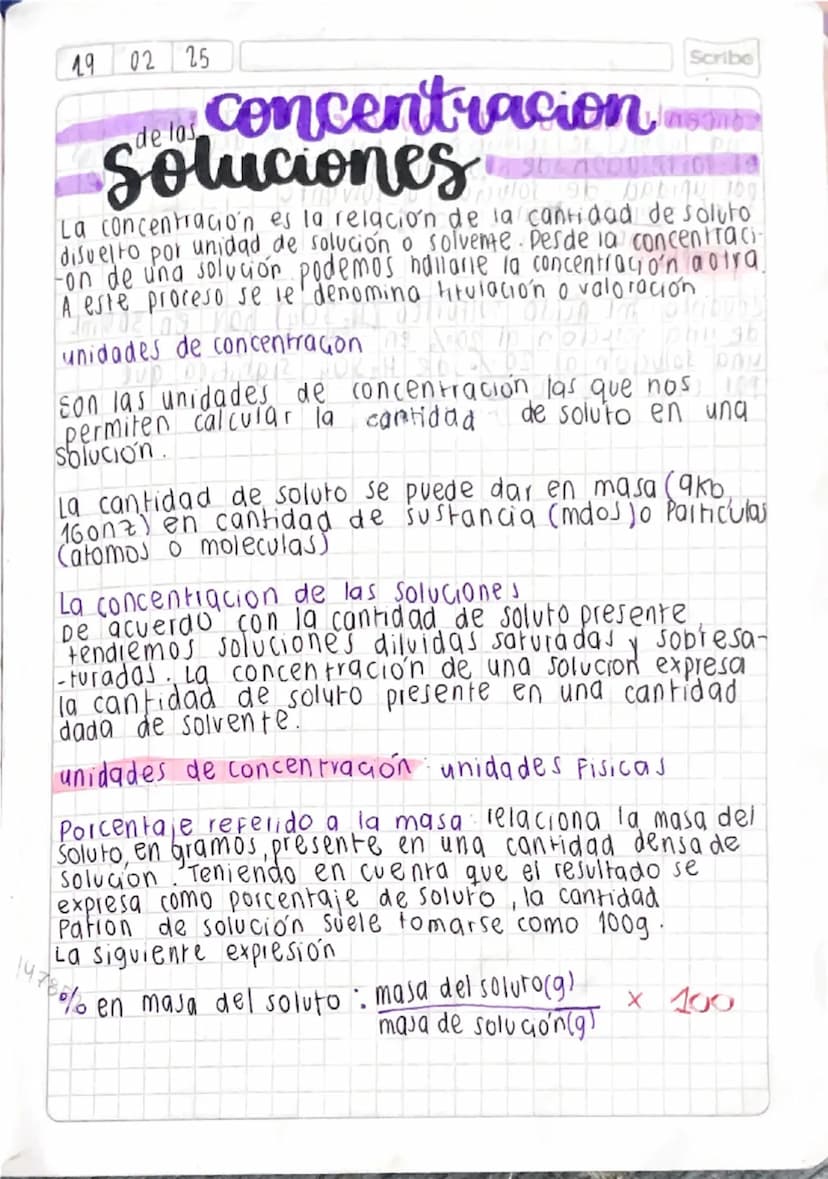 19 02 25
Scribe
concentracion
de las
Soluciones
La concentración es la relación de la cantidad de soluto
disuelto por unidad de solución o solvente. Desde la concentraci-
-on de una solución podemos hallarle la concentración a otra.
A este proceso se le denomina titulación o valoración
unidades de concentracion
son las unidades de concentración las que nos
permiten calcular la cantidad de soluto en una
solución.
La cantidad de soluto se puede dar en masa (9kb,
160nz) en cantidad de sustancia (mdos) o Particulas
(atomos o moleculas)
La concentracion de las soluciones
De acuerdo con la cantidad de soluto presente,
tendremos soluciones diluidas saturadas y sobresa-
-turadas. La concentración de una solucion expresa
la cantidad de soluto presente en una cantidad
dada de solvente.
unidades de concentración: unidades Fisicas
Porcentaje referido a la masa: relaciona la masa del
soluto, en gramos, presente en una cantidad densa de
solucion. Teniendo en cuenta que el resultado se
expresa como porcentaje de soluto, la cantidad
Patron de solución suele tomarse como 100g.
La siguiente expresión
% en masa del soluto: masa del soluto(g)
masa de solución(g) x 100